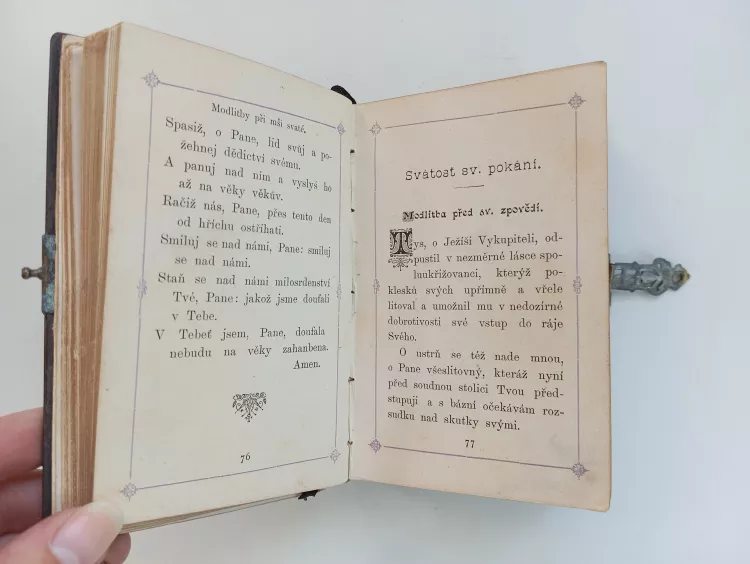 Modlitby při mši svaté.
Spasiž, o Pane, lid svůj a po-
žehnej dědictví svému.
A panuj nad ním a vyslyš ho
až na věky věkův.
Račiž nás, Pane, přes tento den
od hříchu ostříhati.
Smiluj se nad námi, Pane: smiluj
se nad námi.
Staň se nad námi milosrdenství
Tvé, Pane: jakož jsme doufali
v Tebe.
V Tebeť jsem, Pane, doufala
nebudu na věky zahanbena.
Amen.
76
Svátost sv. pokání.
Modlitba před sv. zpovědí.
Tys, o Ježíši Vykupiteli, od-
pustil v nezměrné lásce spo-
luukřižovanci, kterýž po-
klesků svých upřímně a vřele
litoval a umožnil mu v nedozírné
dobrotivosti své vstup do ráje
Svého.
O ustrň se též nade mnou,
o Pane všeslitovný, kteráž nyní
před soudnou stolici Tvou před-
stupuji a s bázní očekávám roz-
sudku nad skutky svými.
77